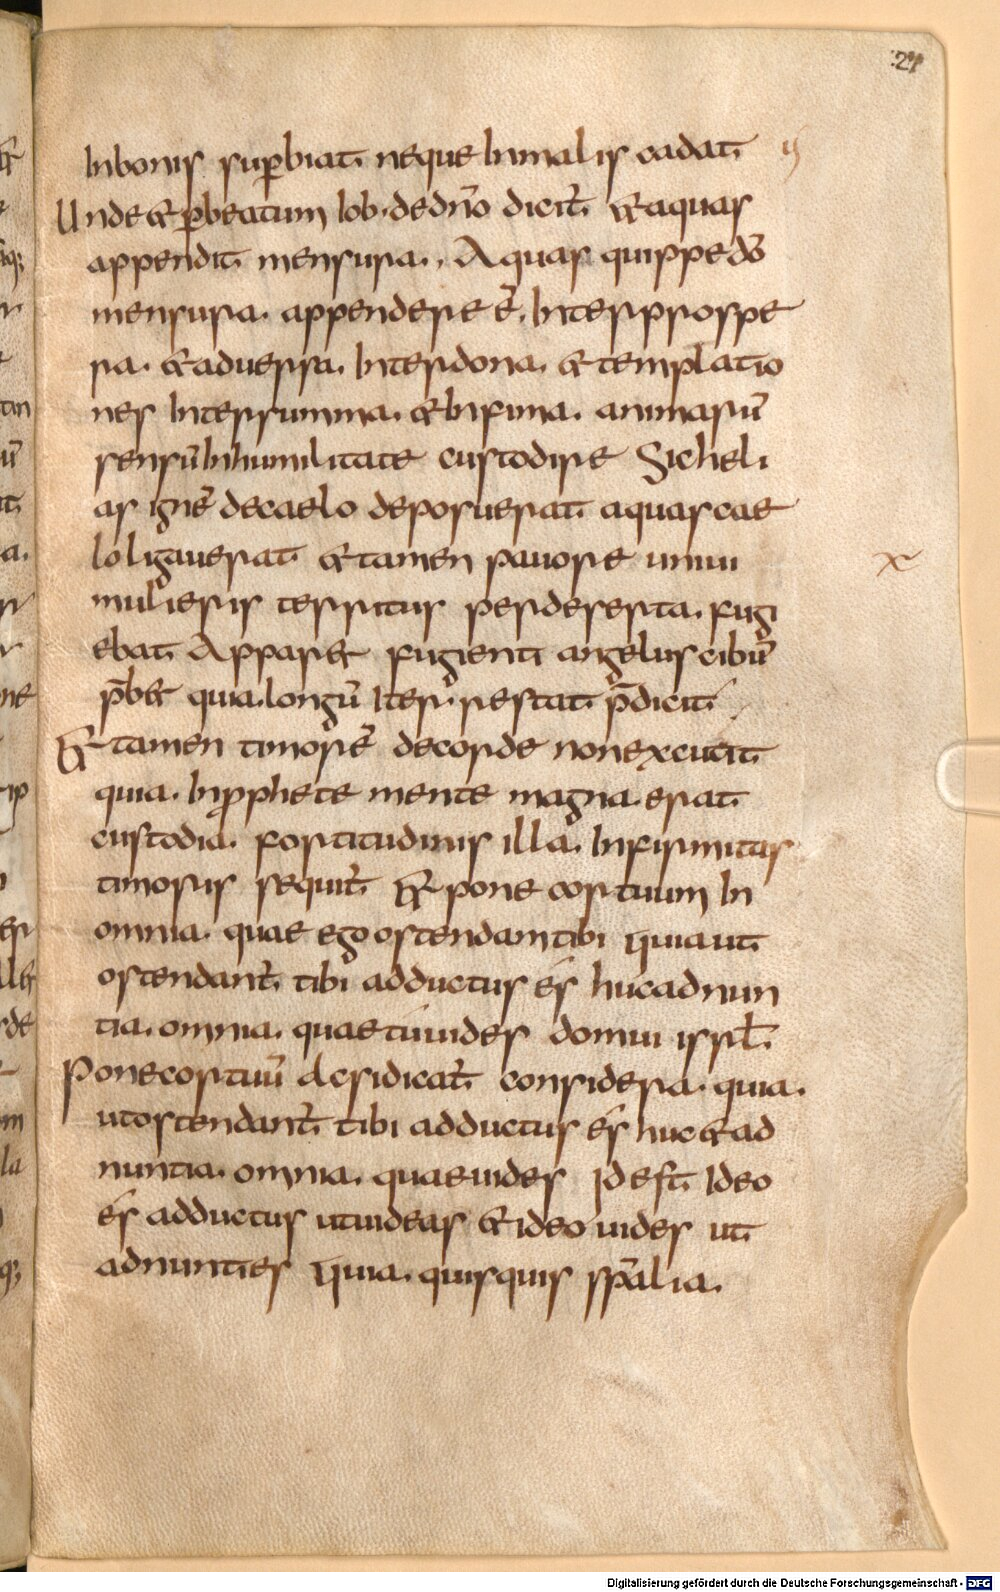 24
In bonis sup̄biat neque In malis cadat
Unde & p̱ beatum Iob. de dn̄o dicit̄. & aquas
appendit mensura., Aquas quippe dō
mensura. appendere ē. Inter prospe
ra. & aduersa. Inter dona. & temptatio
nes Inter summa. & Infima. animarū
sensū In humilitate custodire Sic heli
as ignē de caelo deposuerat aquas cae
lo ligauerat & tamen pauore unius
mulieris territus per deserta. fugi
ebat Appar& fugienti angelus cibū
p̄b& quia longū Iter restat p̄dicit
& tamen timorē de corde non excutit
quia. In prophete mente magna. erat
custodia. fortitudinis illa. Infirmitas
timoris sequit̄. & pone cor tuum In
omnia. quae ego ostendam tibi quia ut
ostendant̄. tibi adductus és huc adnun
tia. omnia. quae tú uides domui isrl̄.
Pone cor tuū ac si dicat̄ considera. quia.
ut ostendant̄. tibi adductus és huc & ad
nuntia. omnia. quae uides Id est Ideo
és adductus ut uideas & ideo uides ut
adnunties quia. quisquis sp̄alia.
Digitalisierung gefördert durch die Deutsche Forschungsgemeinschaft - DFG